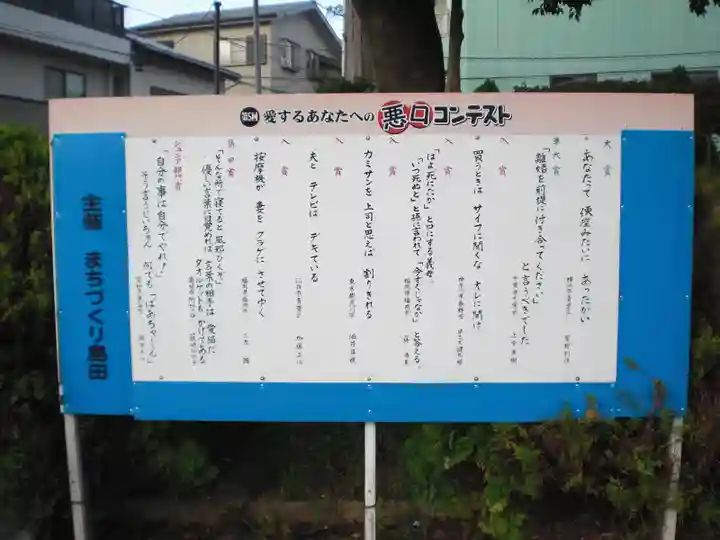 第5回 愛するあなたへの 悪口コンテスト
大賞
あなたって 便座みたいに あったかい
準大賞
「離婚を前提に付き合ってください」
と言うべきでした
入賞
買うときは サイフに聞くな オレに聞け
入賞
「はよ死にたか」と口にする義母。
「いつ死ぬと」と孫に言われて「今すぐじゃなか」と答える。
入賞
カミサンを 上司と思えば 割りきれる
入賞
夫と テレビは デキている
入賞
按摩機が 妻をクラゲに させてゆく
島田賞
「そんな所で寝てると風邪ひくぞ」
優しい言葉に目覚めれば 言葉の相手は 愛猫だ
タオルケットも かけてある
ジュニア部門賞
「自分の事は自分でやれ！」
そう言うじいちゃん 何でも「ばあちゃ〜ん」
主催 まちづくり島田